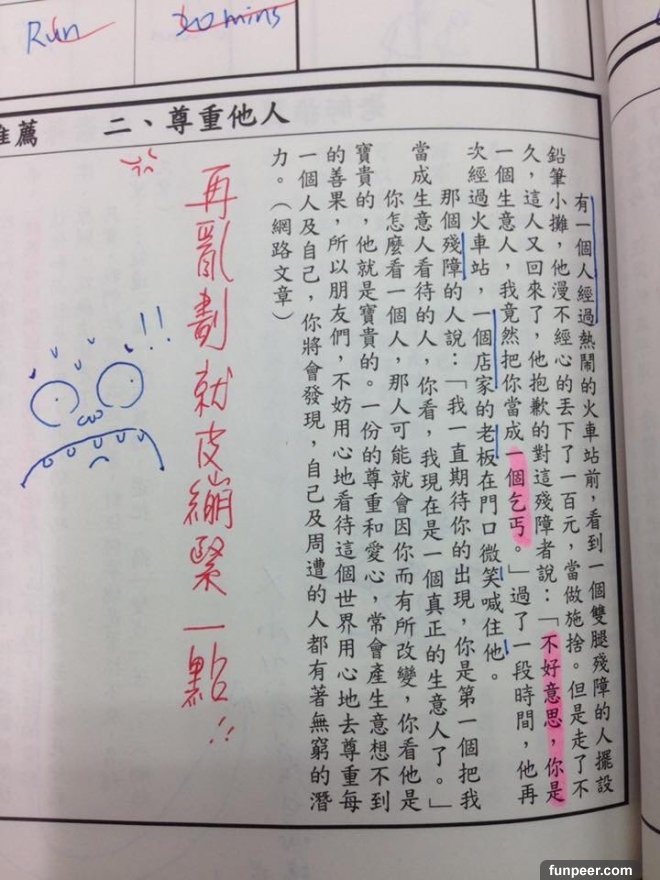 Run
20 mins
二、尊重他人
推薦
有一個人經過熱鬧的火車站前，看到一個雙腿殘障的人擺設
鉛筆小攤，他漫不經心的丟下了一百元，當做施捨。但是走了不
久，這人又回來了，他抱歉的對這殘障者說：「不好意思，你是
一個生意人，我竟然把你當成一個乞丐。」過了一段時間，他再
次經過火車站，一個店家的老板在門口微笑喊住他。
那個殘障的人說：「我一直期待你的出現，你是第一個把我
當成生意人看待的人，你看，我現在是一個真正的生意人了。」
你怎麼看一個人，那人可能就會因你而有所改變，你看他是
寶貴的，他就是寶貴的。一份的尊重和愛心，常會產生意想不到
的善果，所以朋友們，不妨用心地看待這個世界用心地去尊重每
一個人及自己，你將會發現，自己及周遭的人都有著無窮的潛
力。（網路文章）
再亂劃就皮繃緊一點!!
!!
funpeer.com